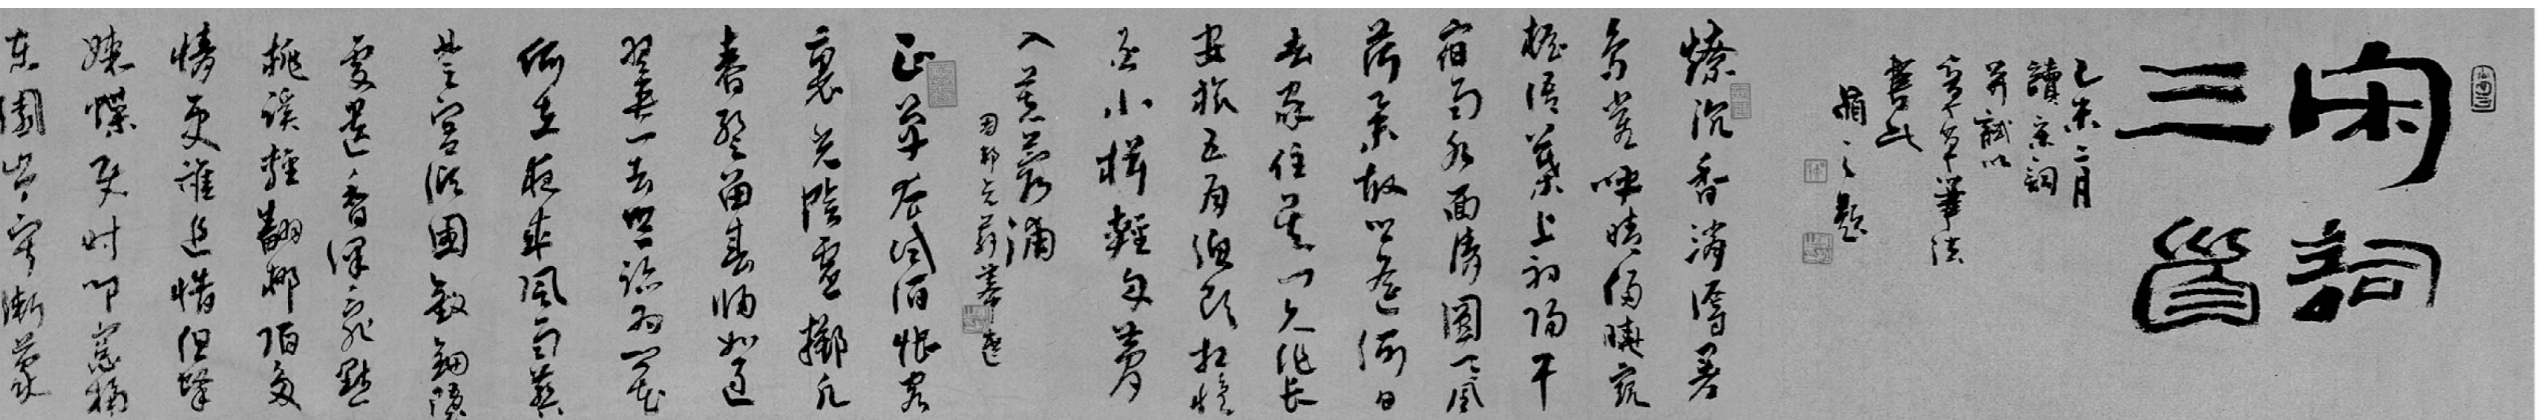 宋詞
三首
乙未二月
讀宋詞
并試以
草筆法
書此
題
燎沉香消溽暑
鳥雀呼晴侵曉窺
檐語葉上初陽干
宿雨水面清圓一一風
荷舉故鄉遙何日
去家住吳門久作長
安旅五月漁郎相憶
否小楫輕舟夢
入芙蓉浦
周邦彥蘇幕遮
正單衣試酒悵客
裏光陰虛擲願
春暫留春歸如過
翼一去無跡為問花
何在夜來風雨葬
楚宮傾國釵鈿墮
處遺香澤亂點
桃蹊輕翻柳陌多
情更誰追惜但蜂
媒蝶使時叩窗槅
東園岑寂漸蒙